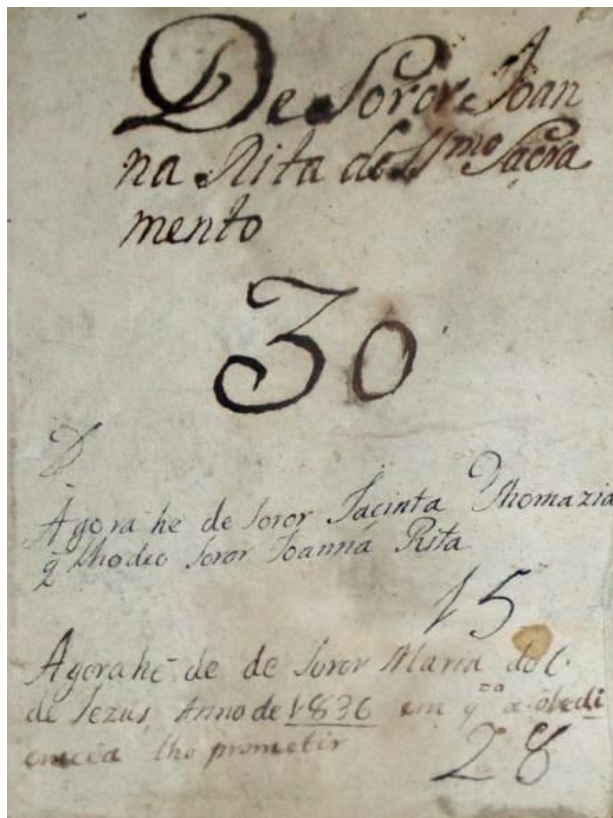 De Soror Joan
na Rita do SSmo Sacra
mento
30
D
Agora he de soror Jacinta Thomazia
q̃ lho deo Soror Joanna Rita
15
Agora he de de Soror Maria do C.
de Jezus, Anno de 1836 em qto a obedi
encia lho prometir
28